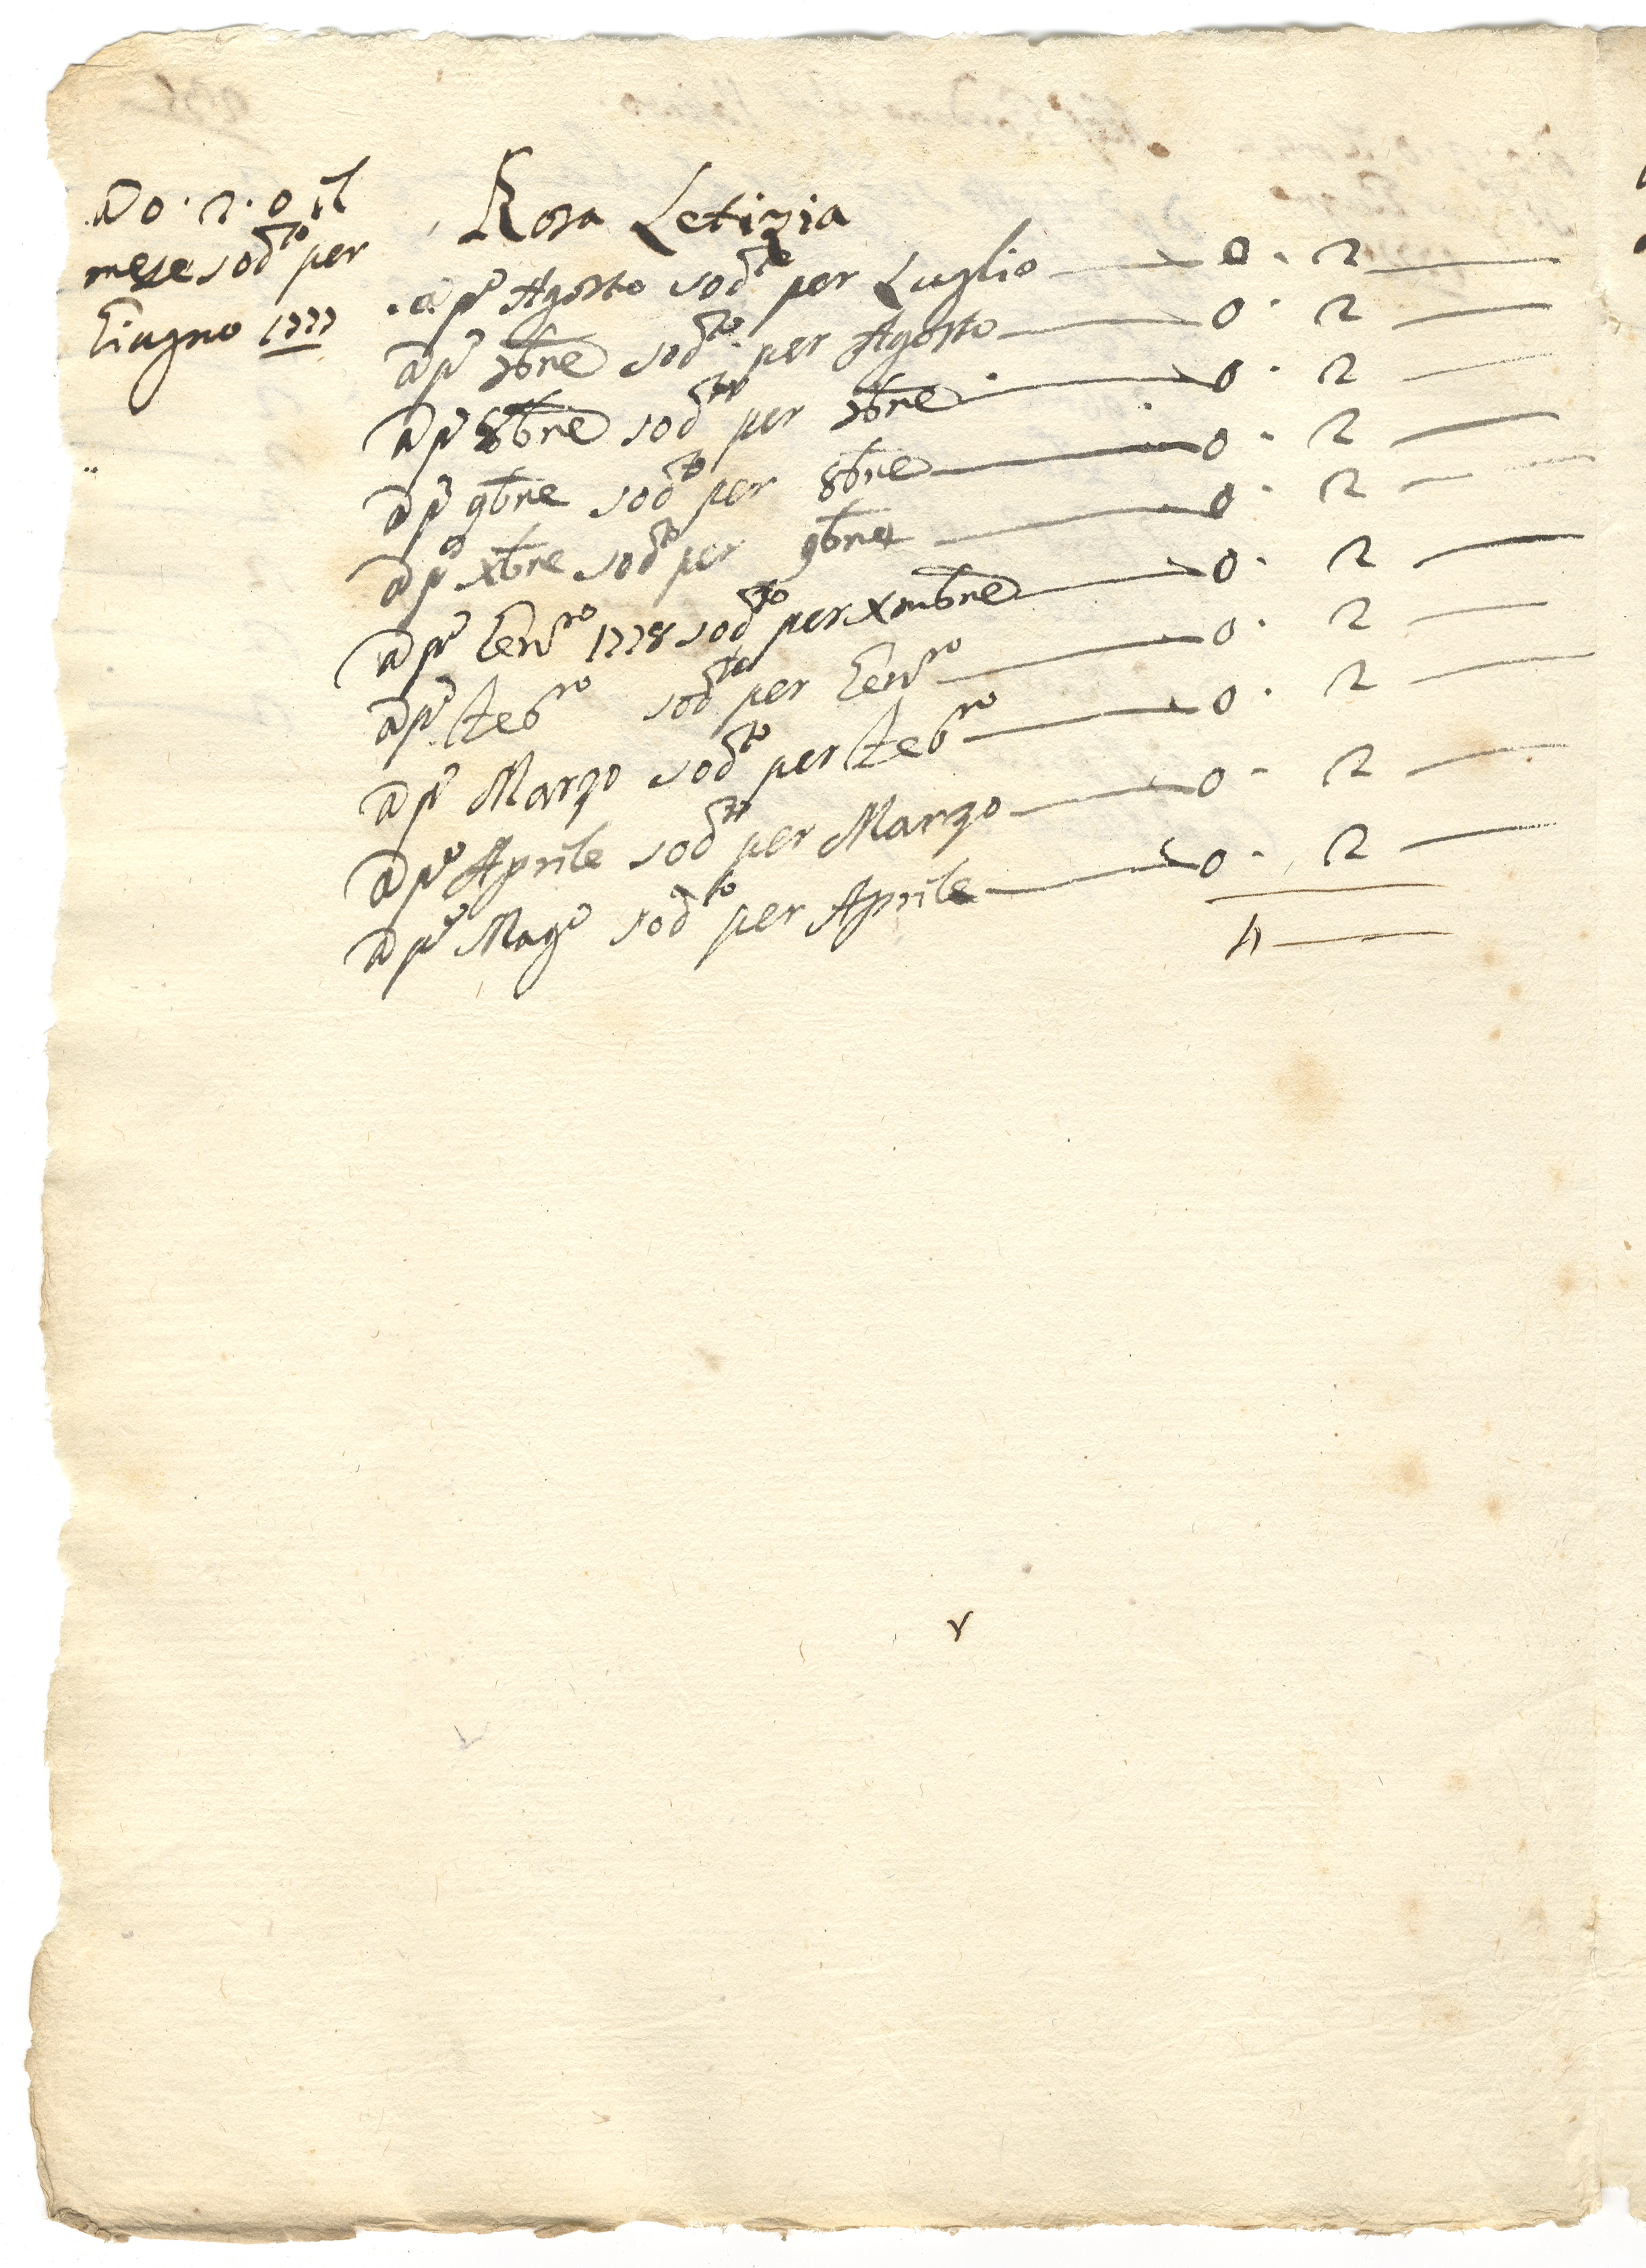 a D 0 . 2 . 0 il
mese sodto per
Giugno 1777
Rosa Letizia
a pº Agosto sodto per Luglio — 0 . 2 —
a pº 7bre sodto per Agosto — 0 . 2 —
a pº 8bre sodto per 7bre — 0 . 2 —
a pº 9bre sodto per 8bre — 0 . 2 —
a pº xbre sodto per 9bre — 0 . 2 —
a pº Genro 1778 sodto per Xmbre — 0 . 2 —
a pº Febro sodto per Genro — 0 . 2 —
a pº Marzo sodto per Febro — 0 . 2 —
a pº Aprile sodto per Marzo — 0 . 2 —
a pº Magº sodto per Aprile — 0 . 2 —